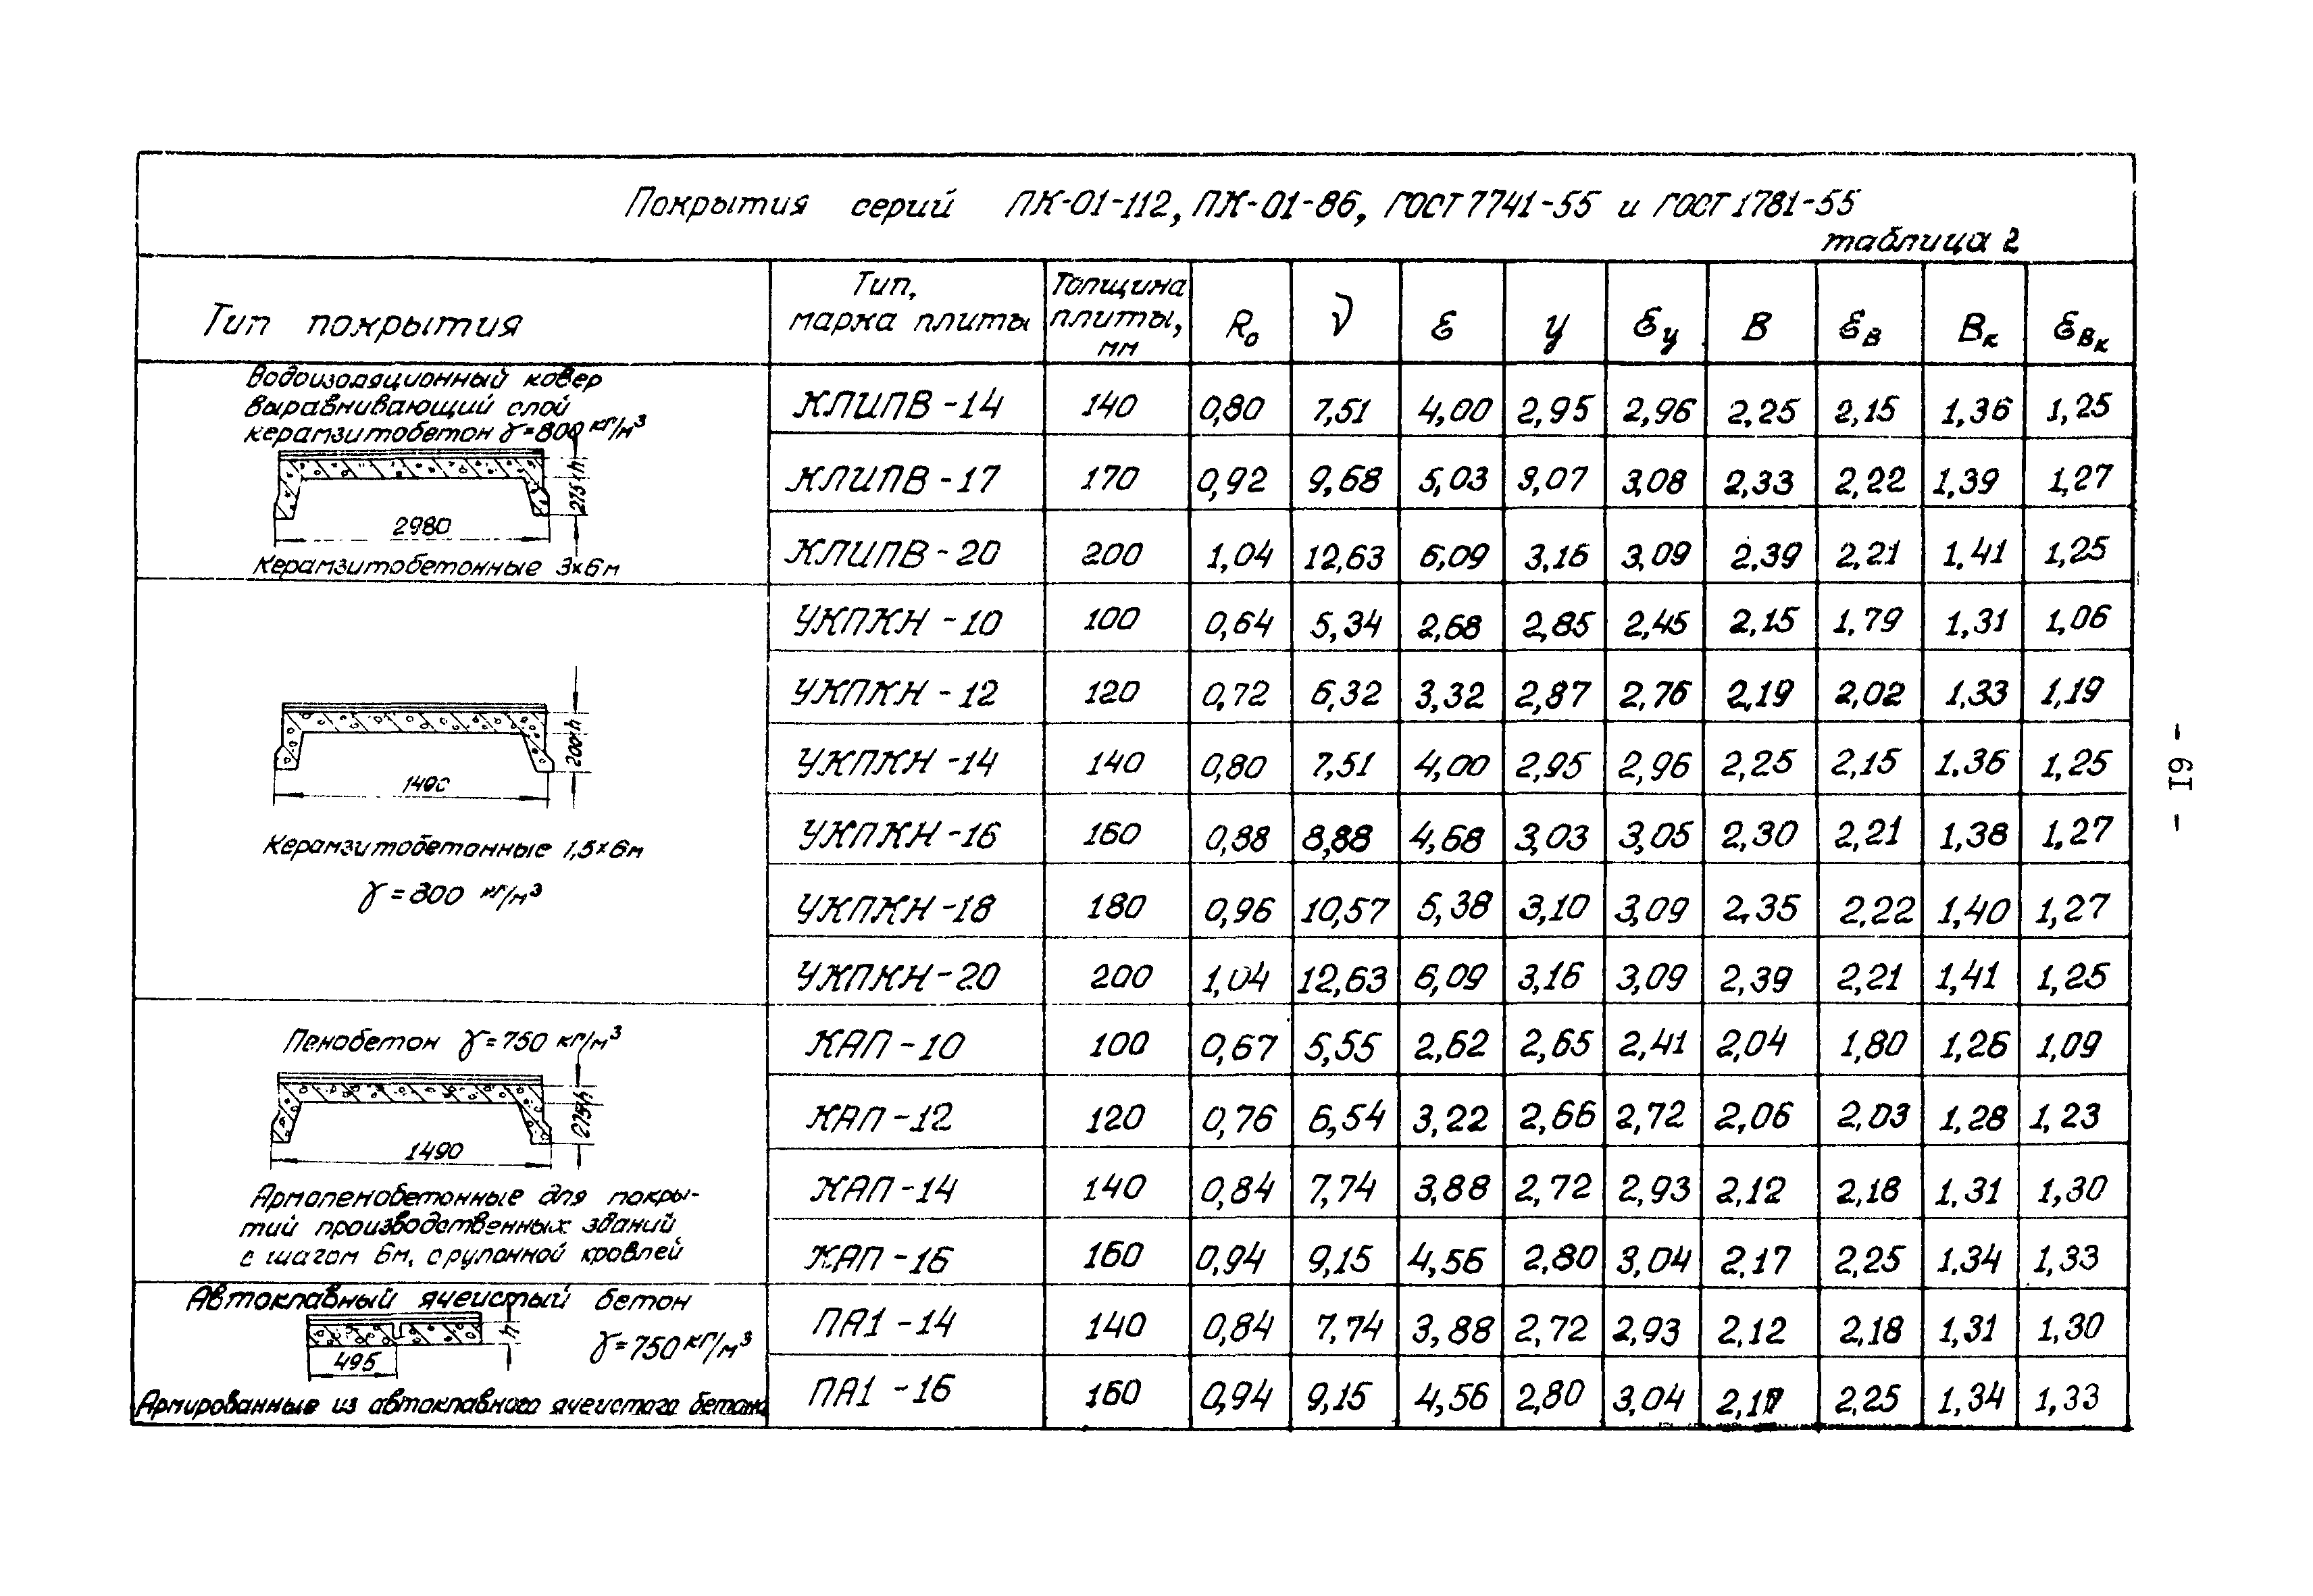 Покрытия серий ПК-01-112, ПК-01-86, ГОСТ 7741-55 и ГОСТ 1781-55
таблица 2
Тип покрытия
Тип, марка плиты
Толщина плиты, мм
R₀ ν ε у εу В εв Вк εвк
Водоизоляционный ковер
выравнивающий слой
керамзитобетон γ=800 кг/м³
275+h
2980
Керамзитобетонные 3×6м
КЛИПВ-14 140 0,80 7,51 4,00 2,95 2,96 2,25 2,15 1,36 1,25
КЛИПВ-17 170 0,92 9,68 5,03 3,07 3,08 2,33 2,22 1,39 1,27
КЛИПВ-20 200 1,04 12,63 6,09 3,16 3,09 2,39 2,21 1,41 1,25
200+h
1490
Керамзитобетонные 1,5×6м
γ=800 кг/м³
УКПКН-10 100 0,64 5,34 2,68 2,85 2,45 2,15 1,79 1,31 1,06
УКПКН-12 120 0,72 6,32 3,32 2,87 2,76 2,19 2,02 1,33 1,19
УКПКН-14 140 0,80 7,51 4,00 2,95 2,96 2,25 2,15 1,36 1,25
УКПКН-16 160 0,88 8,88 4,68 3,03 3,05 2,30 2,21 1,38 1,27
УКПКН-18 180 0,96 10,57 5,38 3,10 3,09 2,35 2,22 1,40 1,27
УКПКН-20 200 1,04 12,63 6,09 3,16 3,09 2,39 2,21 1,41 1,25
Пенобетон γ=750 кг/м³
275+h
1490
Армопенобетонные для покры-
тий производственных зданий
с шагом 6м, с рулонной кровлей
КАП-10 100 0,67 5,55 2,62 2,65 2,41 2,04 1,80 1,26 1,09
КАП-12 120 0,76 6,54 3,22 2,66 2,72 2,06 2,03 1,28 1,23
КАП-14 140 0,84 7,74 3,88 2,72 2,93 2,12 2,18 1,31 1,30
КАП-16 160 0,94 9,15 4,56 2,80 3,04 2,17 2,25 1,34 1,33
Автоклавный ячеистый бетон
h
γ=750 кг/м³
495
Армированные из автоклавного ячеистого бетона
ПА1-14 140 0,84 7,74 3,88 2,72 2,93 2,12 2,18 1,31 1,30
ПА1-16 160 0,94 9,15 4,56 2,80 3,04 2,17 2,25 1,34 1,33
- 19 -